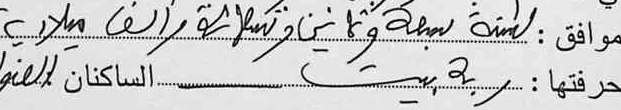 موافق : لسنة سبعة وثمانين وتسعمائة وألف ميلادية
حرفتها : ربة بيت الساكنان